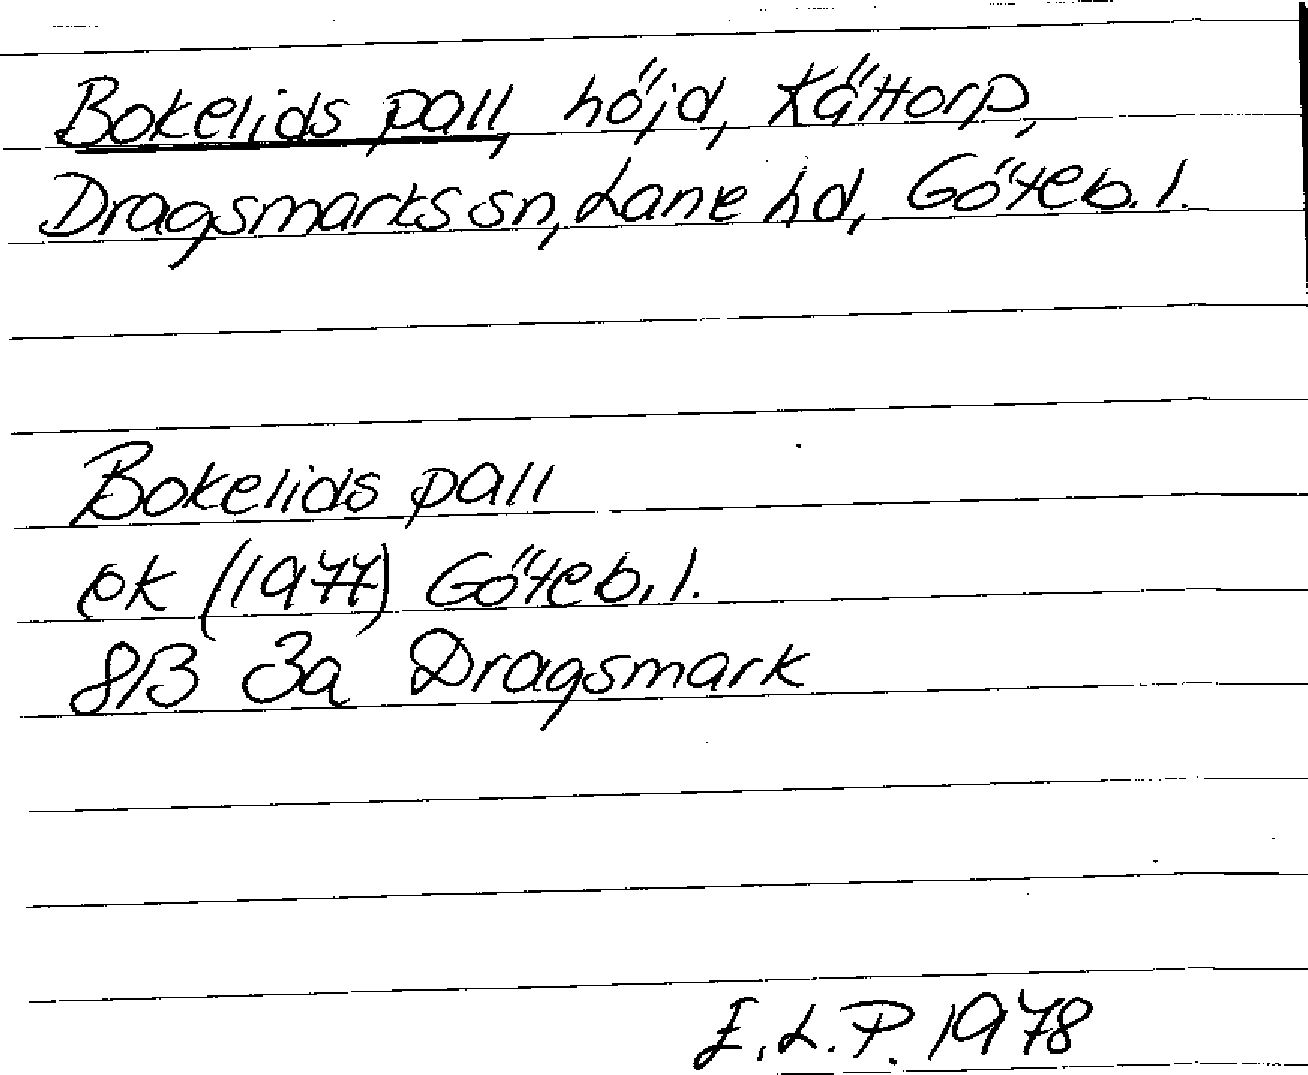 Bokelids pall, höjd, Kättorp,
Dragsmarks sn, Lane hd, Göteb. l.
Bokelids pall
ek (1977) Göteb. l.
8B 3a Dragsmark
E.L.P. 1978